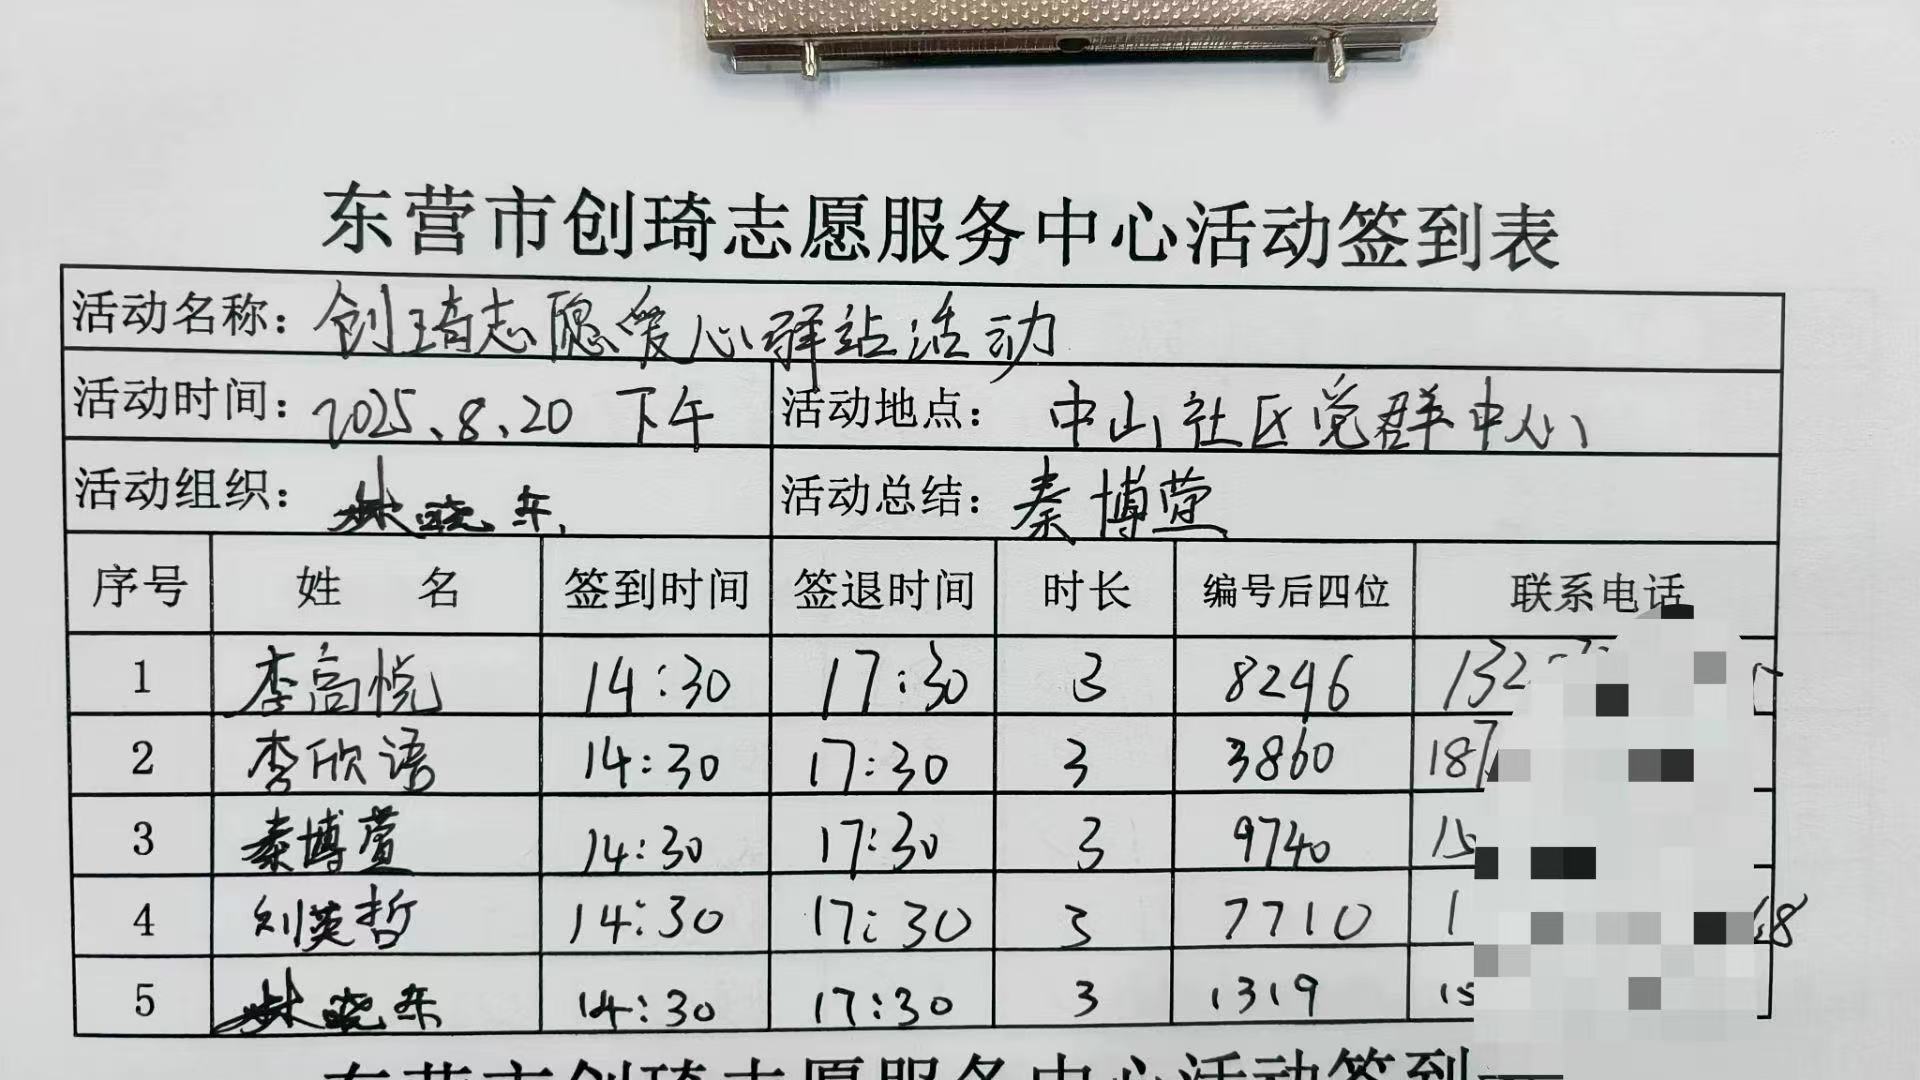 东营市创琦志愿服务中心活动签到表
活动名称：创琦志愿爱心驿站活动
活动时间：2025.8.20 下午 活动地点：中山社区党群中心
活动组织：林晓东 活动总结：秦博萱
序号 姓 名 签到时间 签退时间 时长 编号后四位 联系电话
1 李高悦 14:30 17:30 3 8246 132
2 李欣语 14:30 17:30 3 3860 187
3 秦博萱 14:30 17:30 3 9740 15
4 刘英哲 14:30 17:30 3 7710 1 68
5 林晓东 14:30 17:30 3 1319 15
东营市创琦志愿服务中心活动签到